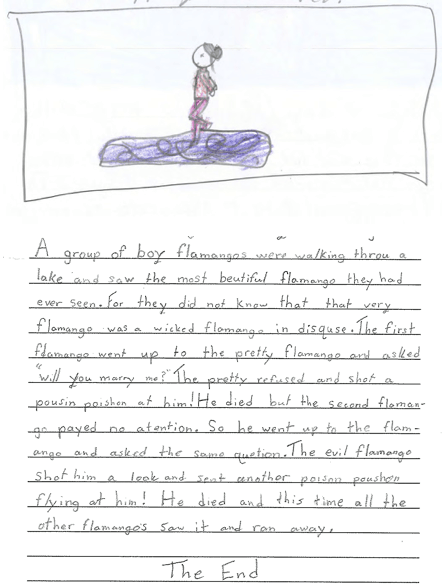 A group of boy flamangos were walking throu a
lake and saw the most beutiful flamango they had
ever seen. For they did not know that that very
flamango was a wicked flamango in disguse. The first
flamango went up to the pretty flamango and asked
"will you marry me?" The pretty refused and shot a
pousin poishon at him! He died but the second flaman-
go payed no atention. So he went up to the flam-
ango and asked the same quetion. The evil flamango
shot him a look and sent another poison poushon
flying at him! He died and this time all the
other flamangos saw it and ran away.
The End